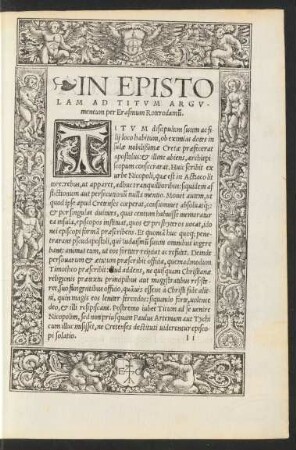 IN EPISTO
LAM AD TITVM ARGV-
mentum per Erasmum Roterodamũ.
TITVM discipulum suum ac fi
lij loco habitum, ob eximias dotes in
sulæ nobilissimæ Cretæ præfecerat
apostolus: & illinc abiens, archiepi
scopum consecrarat. Huic scribit ex
urbe Nicopoli, quæ est in
littore, ut apparet, adhuc tranquillioribus
flictionum aut persecutionũ nulla mentio. Monet autem, ut
quod ipse apud Cretenses cœperat, consummet absoluatq;:
& per singulas ciuitates, quas centum habuisse memoratur
ea insula, episcopos instituat, quos & presbyteros uocat,
nei episcopi forma præscribens. Et quoniã huc quoq; pene-
trarant pseudapostoli, qui iudaismũ suum omnibus ingere
bant: animat Titum, ut eos fortiter reijciat ac refutet. Deinde
personarum & ætatum præscribit officia, quemadmodum
Timotheo præscribit: illud addens, ne quisquam Christianæ
religionis prætextu principibus aut magistratibus
ret, suo fungentibus officio, quãuis essent à Christi fide alie
ni, quin magis eos leniter ferendos: siquando forte,
tio, & illi resipiscant. Postremo iubet Titum ad se uenire
Nicopolim, sed non priusquam Paulus Artemam aut Tychi
cum illuc misisset, ne Cretenses destituti uiderentur episco
pi solatio.